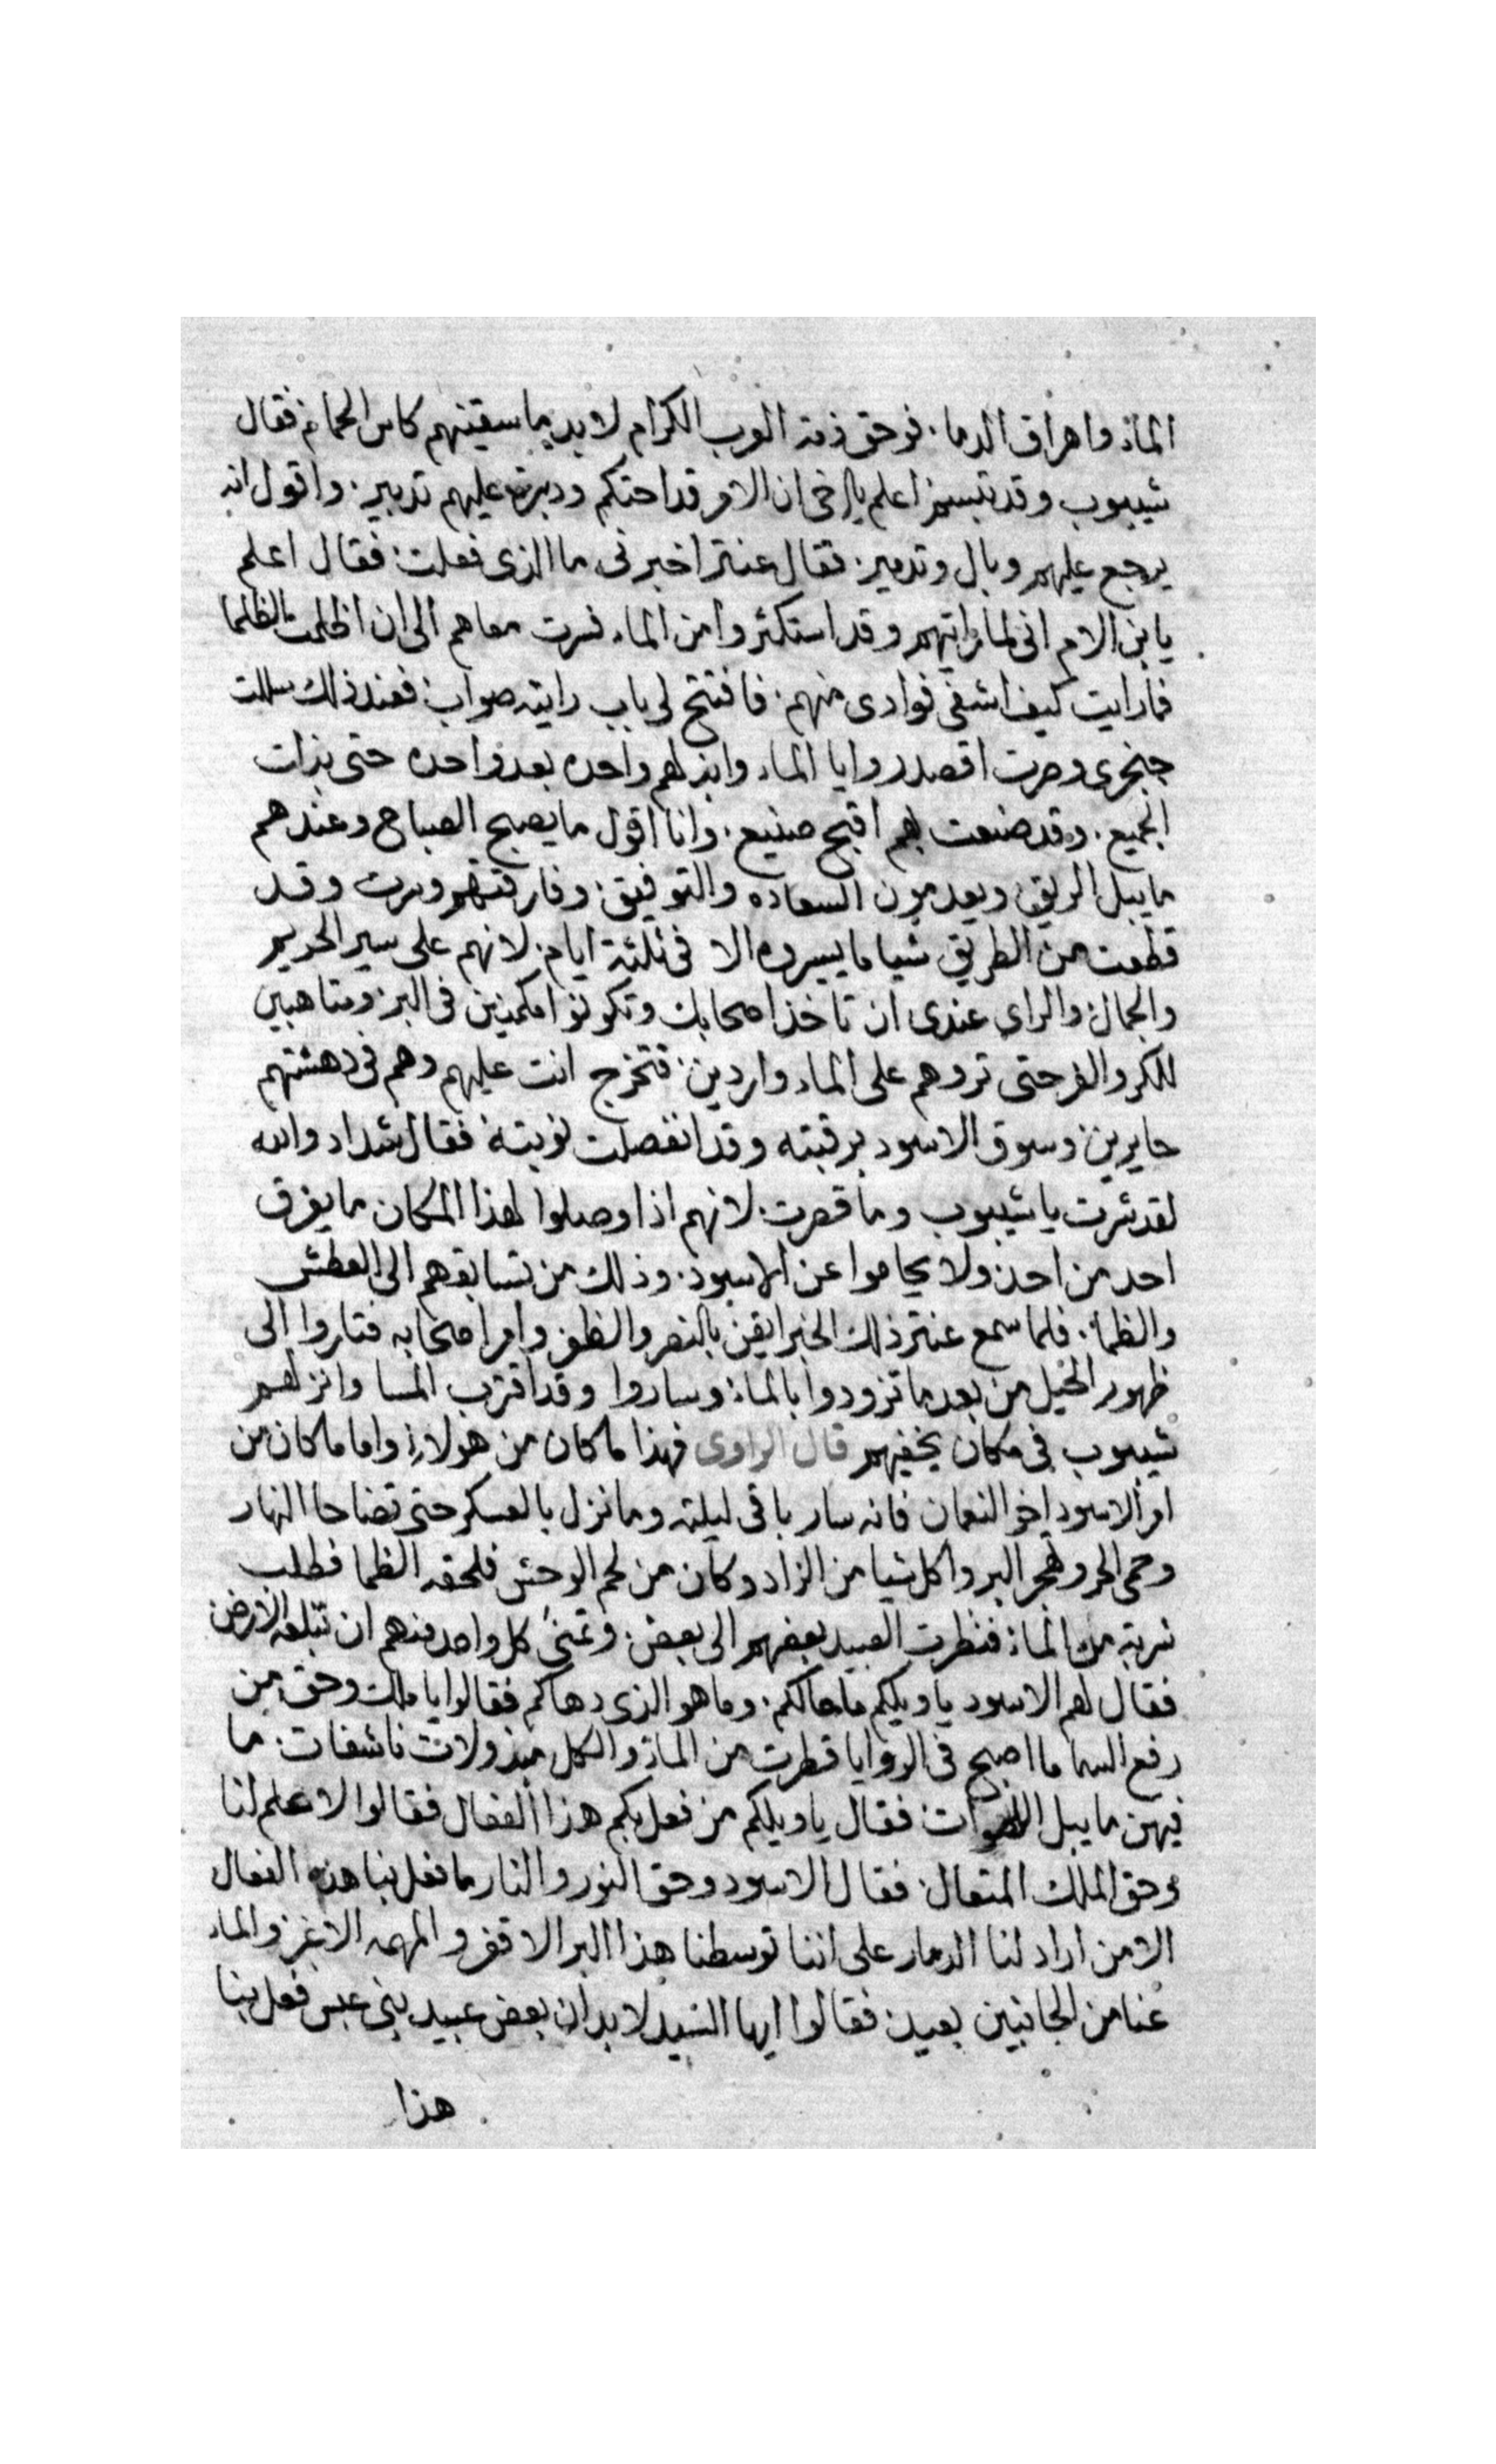 الماء واهراق الدما. فوحق ذمة العرب الكرام لا بد ما سقيتهم كاس الحمام فقال
شيبوب وقد تبسم اعلم يا اخى ان الامر قد احتكم ودبرت عليهم تدبير. واقول انه
يرجع عليهم وبال وتدمير. فقال عنتر اخبرنى ما الذى فعلت. فقال اعلم
يا بن الام انى لما رايتهم وقد استكثروا من الماء. فسرت معاهم الى ان اظلمت الظلما
فما رايت كيف اشفى فوادى منهم. فافتتح لى باب رايته صواب. فعند ذلك سللت
خنجرى وصرت اقصد روايا الماء وابذلهم واحده بعد واحده حتى بذلت
الجميع. وقد صنعت بهم اقبح صنيع. وانا اقول ما يصبح الصباح وعندهم
ما يبل الريق. ويعدمون السعاده والتوفيق. وفارقتهم وسرت وقد
قطعت من الطريق شيا ما يسيروه الا فى ثلثة ايام. لانهم على سير الحريم
والجمال. والراى عندى ان تاخذ اصحابك وتكونوا مكمنين فى البر. ومتاهبين
للكر والفر حتى تروهم على الماء واردين. فتخرج انت عليهم وهم فى دهشتهم
حايرين. وسوق الاسود برقبته وقد انفصلت نوبته فقال شداد والله
لقد شرت يا شيبوب وما قصرت. لانهم اذا وصلوا لهذا المكان ما يفرق
احد من احد ولا يحاموا عن الاسود. وذلك من تسابقهم الى العطش
والظما. فلما سمع عنتر ذلك الخبر ايقن بالنصر والظفر وامر اصحابه فثاروا الى
ظهور الخيل من بعد ما تزودوا بالماء. وساروا وقد اقترب المسا وانزلهم
شيبوب فى مكان يخفيهم قال الراوى فهذا ما كان من هولاء. واما ما كان من
امر الاسود اخو النعمان فانه سار باقى ليلته وما نزل بالعسكر حتى تضاحا النهار
وحمى الحر وهجر البر واكل شيا من الزاد وكان من لحم الوحش فلحقه الظما فطلب
شربة من الماء. فنظرت العبيد بعضهم الى بعض. وتمنى كل واحد منهم ان تبلعه الارض
فقال لهم الاسود يا ويلكم ما حالكم. وما هو الذى دهاكم فقالوا يا ملك وحق من
رفع السما ما اصبح فى الروايا قطرت من الماء. والكل مبذولات ناشفات. ما
فيهن ما يبل اللهوات. فقال يا ويلكم من فعل بكم هذا الفعال فقالوا لا علم لنا
وحق الملك المتعال. فقال الاسود وحق النور والنار ما فعل بنا هذه الفعال
الا من اراد لنا الدمار على اننا توسطنا هذا البر الاقفر والمهمه الاغبر والماء
عنا من الجانبين بعيد. فقالوا ايها السيد لا بد ان بعض عبيد بنى عبس فعل بنا
هذا